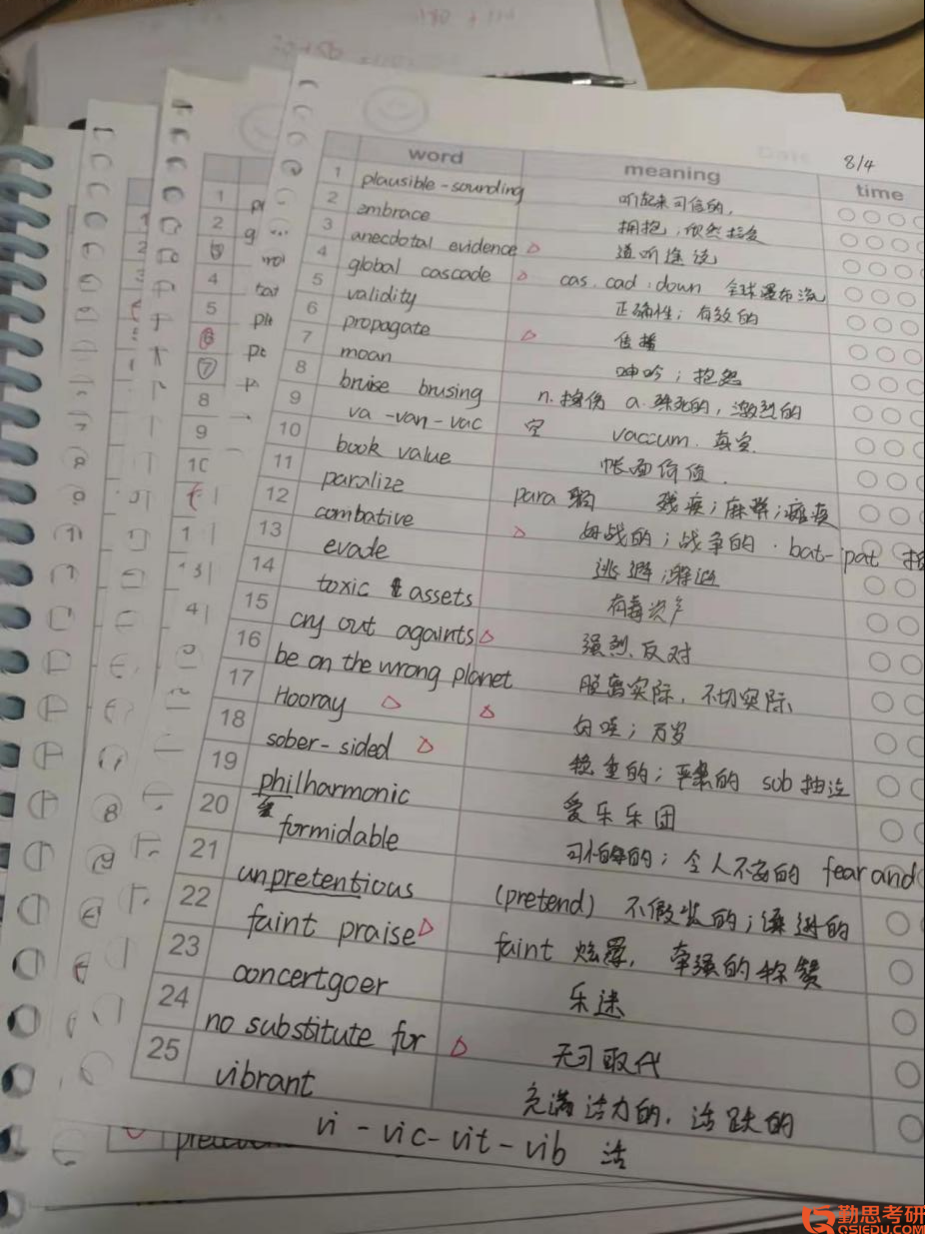 8/4
word meaning time
1 plausible-sounding 听起来可信的,
2 embrace 拥抱;欣然接受
3 anecdotal evidence 道听途说
4 global cascade cas. cad :down 全球瀑布流
5 validity 正确性;有效的
6 propagate 传播
7 moan 呻吟;抱怨
8 bruise brusing n.挫伤 a.殊死的,激烈的
9 va-van-vac 空 vaccum. 真空
10 book value 帐面价值.
11 paralize para 弱 残疾;麻痹;瘫痪
12 combative 好战的;战争的. bat-pat
13 evade 逃避;躲避
14 toxic assets 有毒资产
15 cry out againts 强烈反对
16 be on the wrong planet 脱离实际,不切实际
17 Hooray 好哇;万岁
18 sober-sided 稳重的;严肃的 sub
19 philharmonic 爱乐乐团
爱
20 formidable 可怕的;令人不安的 fear and
21 unpretentious (pretend) 不假装的;谦逊的
22 faint praise faint 炫晕,牵强的称赞
23 concertgoer 乐迷
24 no substitute for 无可取代
25 vibrant 充满活力的,活跃的
vi-vic-vit-vib 活
勤思考研
QSIEDU.COM